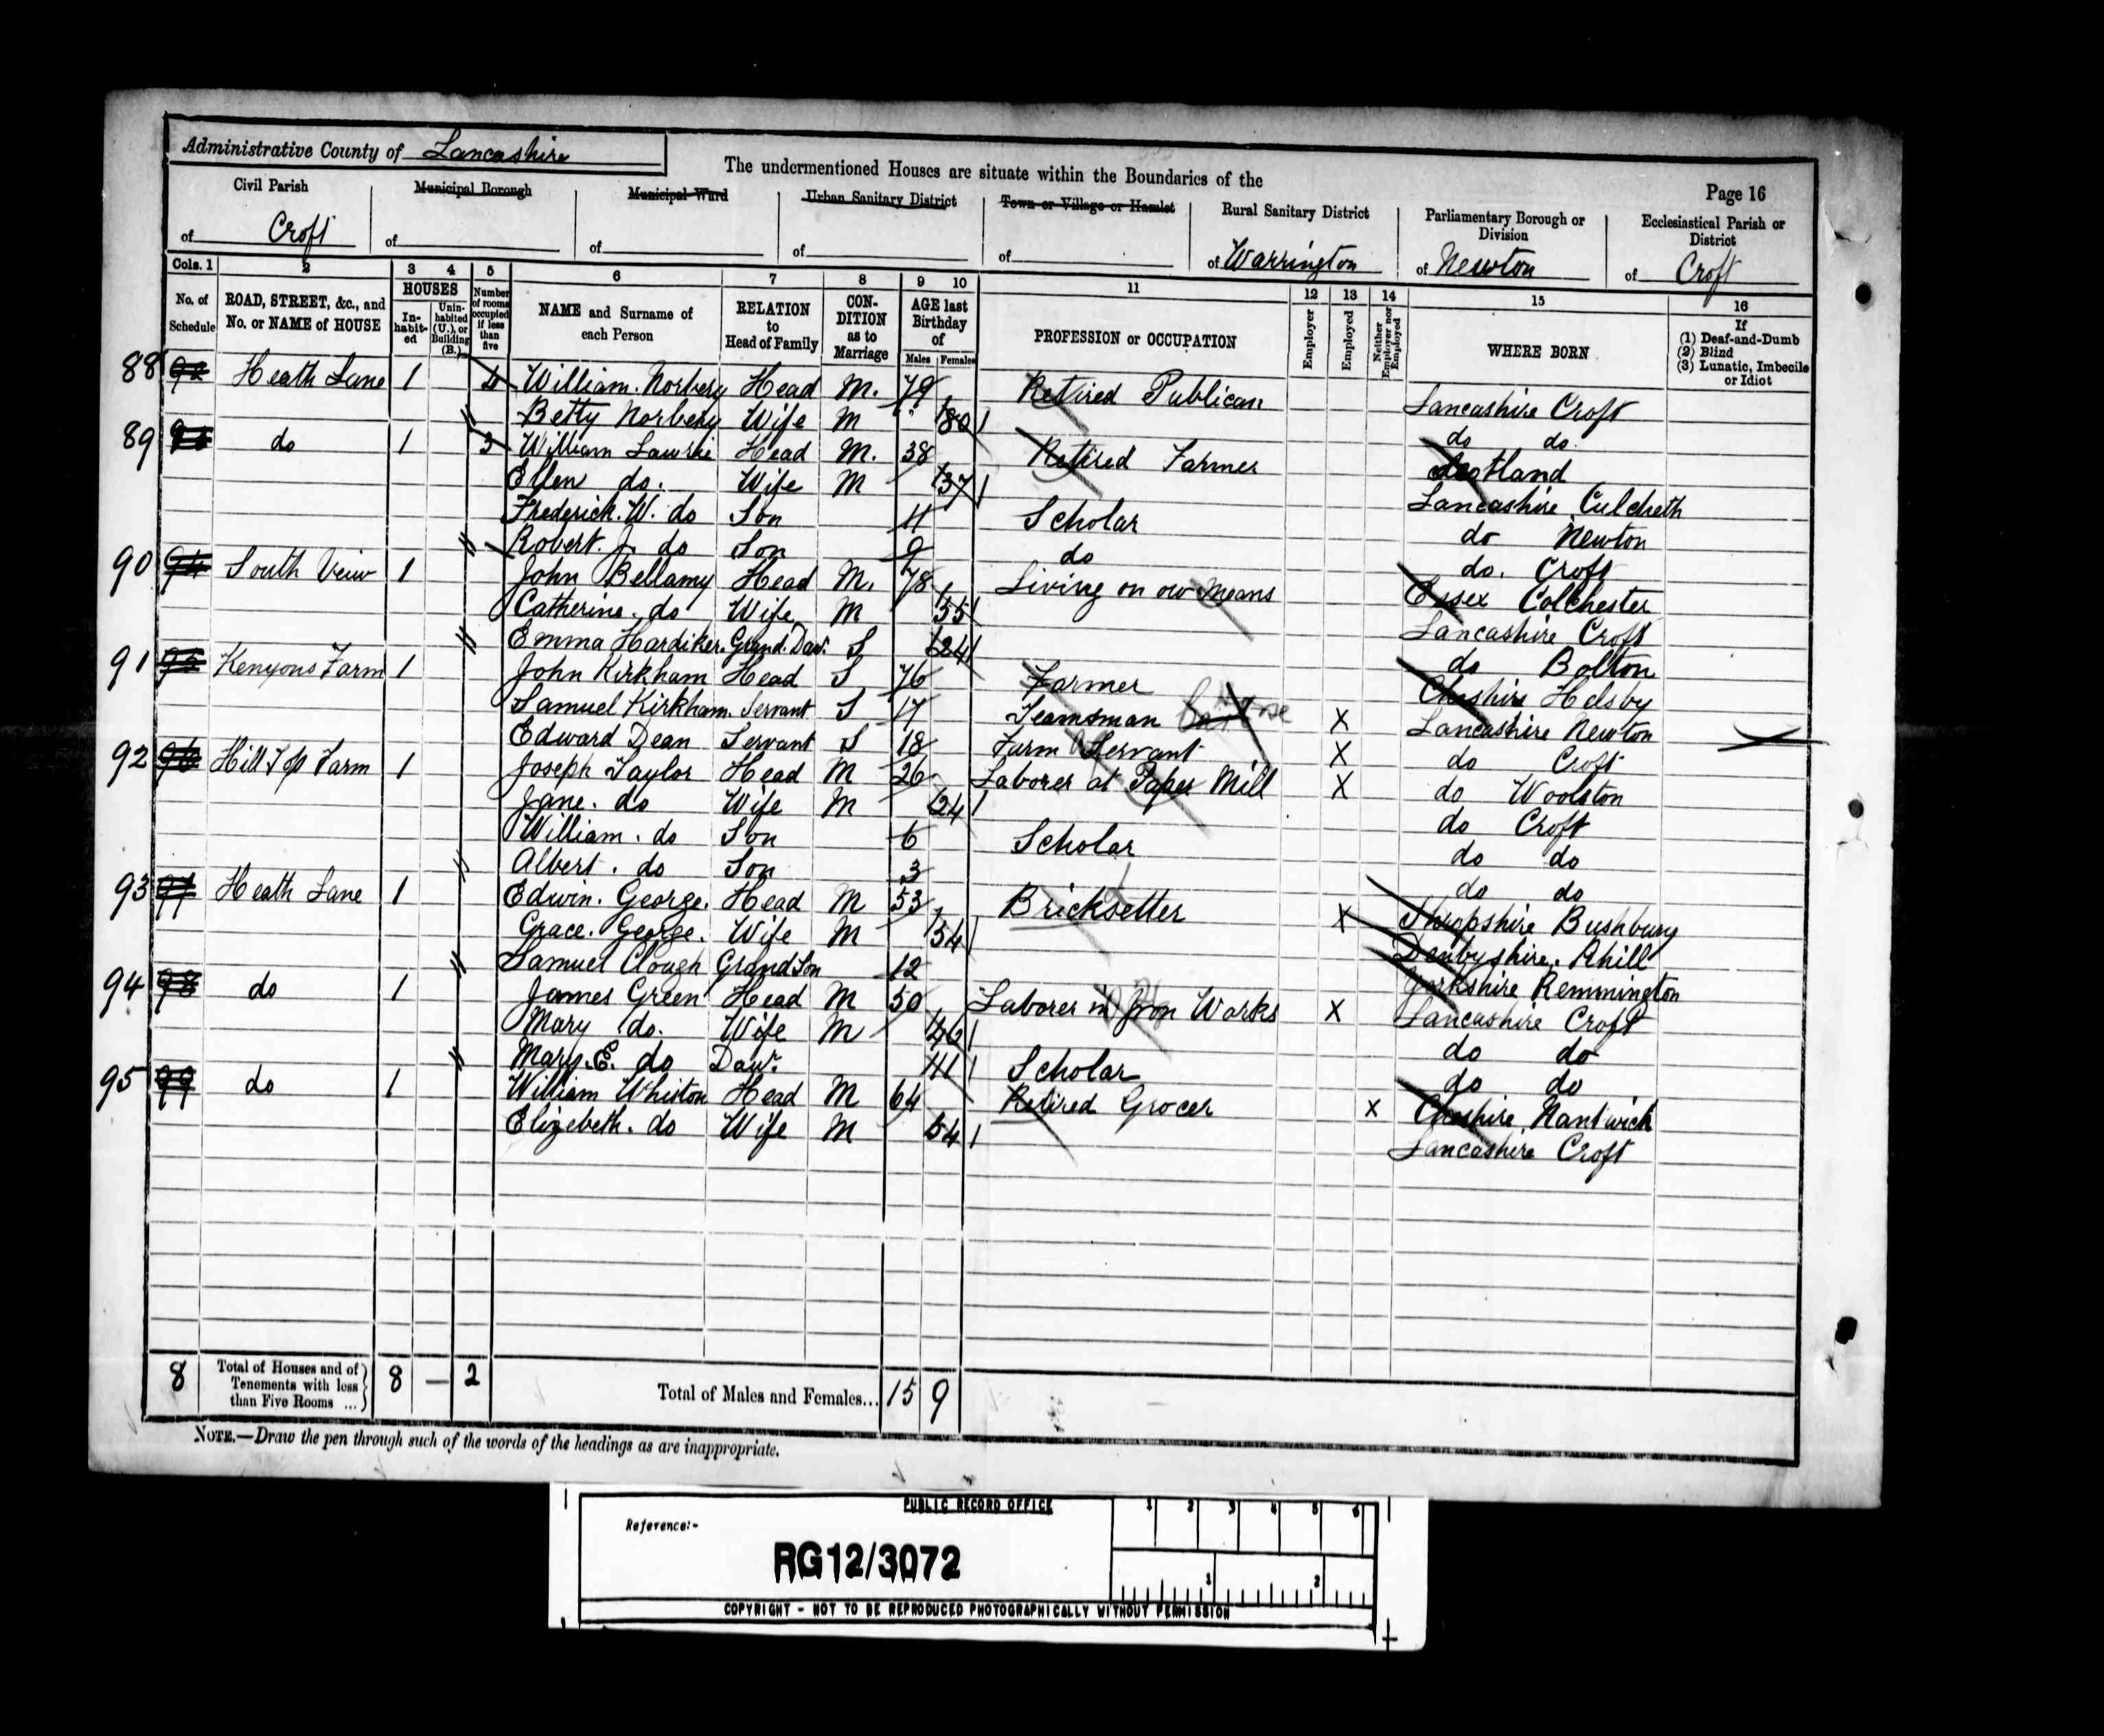 Administrative County of Lancashire
The undermentioned Houses are situate within the Boundaries of the
Page 16
Civil Parish of Croft
Municipal Borough of
Municipal Ward of
Urban Sanitary District of
Town or Village or Hamlet of
Rural Sanitary District of Warrington
Parliamentary Borough or Division of Newton
Ecclesiastical Parish or District of Croft
Cols. 1 2 3 4 5 6 7 8 9 10 11 12 13 14 15 16
No. of Schedule
ROAD, STREET, &c., and No. or NAME of HOUSE
HOUSES
In-habit-ed
Unin-habited (U.), or Building (B.)
Number of rooms occupied if less than five
NAME and Surname of each Person
RELATION to Head of Family
CON-DITION as to Marriage
AGE last Birthday of
Males Females
PROFESSION or OCCUPATION
Employer
Employed
Neither Employer nor Employed
WHERE BORN
If (1) Deaf-and-Dumb (2) Blind (3) Lunatic, Imbecile or Idiot
88 92 Heath Lane 1 4 William. Norbery Head M. 79 Retired Publican Lancashire Croft
Betty Norbery Wife M 80 do do.
89 93 do 1 3 William Lawrie Head M. 38 Retired Farmer Scotland
Ellen do. Wife M 37 Lancashire Culcheth
Frederick. W. do Son 11 Scholar do Newton
Robert. J. do Son 9 do do. Croft
90 94 South View 1 John Bellamy Head M. 78 Living on own Means Essex Colchester
Catherine. do Wife M 55 Lancashire Croft
Emma Hardiker. Grand. Daur. S 24 do Bolton
91 95 Kenyons Farm 1 John Kirkham Head S 76 Farmer Cheshire Helsby
Samuel Kirkham. Servant S 17 Teamsman X Lancashire Newton
Edward Dean Servant S 18 Farm Servant X do Croft
92 96 Hill Top Farm 1 Joseph Taylor Head M 26 Laborer at Paper Mill X do Woolston
Jane. do Wife M 24 do Croft
William. do Son 6 Scholar do do
Albert. do Son 3 do do
93 97 Heath Lane 1 Edwin. George. Head M 53 Bricksetter X Shropshire Bushbury
Grace. George. Wife M 54 Denbyshire. Rhill
Samuel Clough Grand Son 12 Yorkshire Remmington
94 98 do 1 James Green Head M 50 Laborer in Iron Works X Lancashire Croft
Mary do. Wife M 46 do do
Mary. E. do Daur. 11 Scholar do do
95 99 do 1 William Whiston Head M 64 Retired Grocer X Cheshire, Nantwich
Elizebeth. do Wife M 54 Lancashire Croft
8 Total of Houses and of Tenements with less than Five Rooms ... 8 — 2 Total of Males and Females... 15 9
NOTE.—Draw the pen through such of the words of the headings as are inappropriate.
PUBLIC RECORD OFFICE
1 2 3 4 5 6
Reference:-
RG12/3072
1 2
COPYRIGHT - NOT TO BE REPRODUCED PHOTOGRAPHICALLY WITHOUT PERMISSION